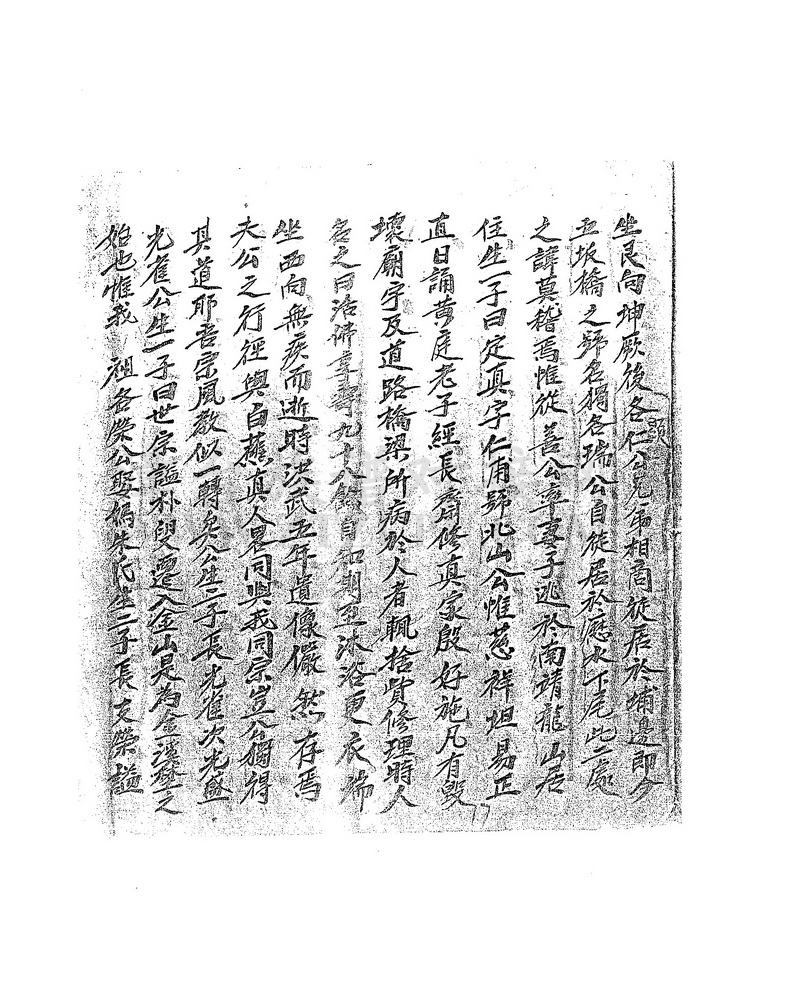 坐艮向坤厥後各仁公兄弟相商徙居於埔邊即今
五坂橋之號名獨各瑞公自徙居於應水下尾此二處
之諱莫稽焉惟從善公率妻子逃於南靖龍山居
住生一子曰定真字仁甫號北山公惟慈祥坦易正
直日誦黃庭老子經長齋修真家殷好施凡有毀
壞廟宇及道路橋梁所病於人者輒捨貲修理時人
名之曰活佛享壽九十八餘自知期至沐浴更衣端
坐西向無疾而逝時洪武五年遺像儼然存焉
夫公之行徑與白蕉真人畧同與我同宗豈公獨得
其道耶吾宗風教似一轉矣公生二子長光雀次光盛
光雀公生一子曰世宗謚朴叟遷入金山是為金溪燈之
始也惟我 祖各榮公娶媽朱氏生二子長友榮謚
顯
17